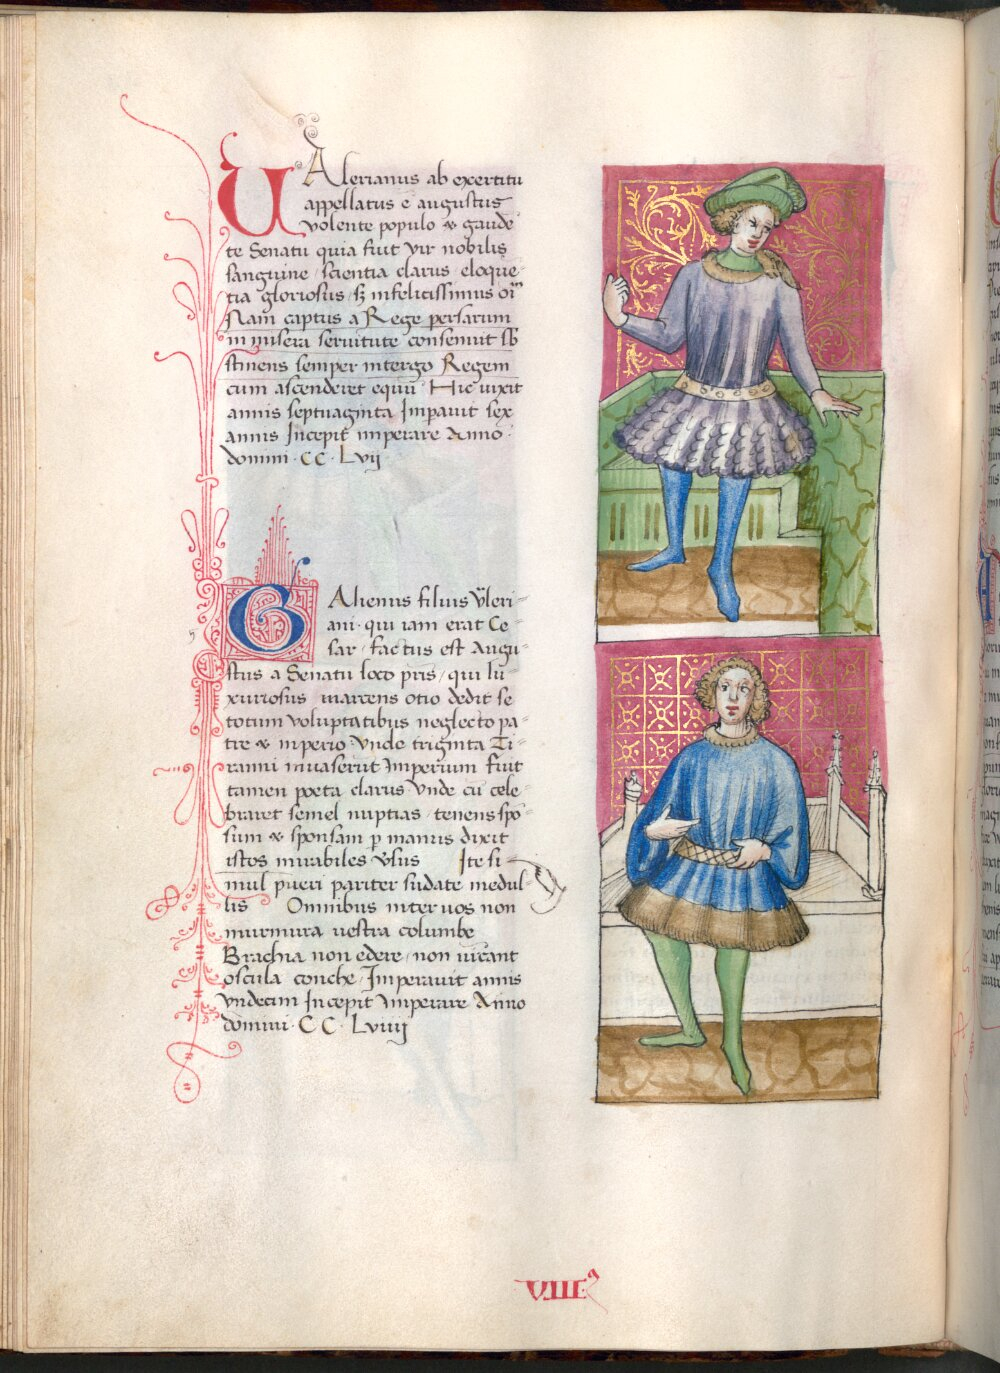 UAlerianus ab exercitu
appellatus e augustus
volente populo & gaudē
te Senatu quia fuit vir nobilis
sanguine scientia clarus eloquē
tia gloriosus sʒ infelicissimus oīm
Nam captus a Rege persarum
in misera servitute consenuit sb
stinens semper intergo Regem
cum ascenderet equū Hic vixit
annis septuaginta Impauit sex
annis Incepit imperare Anno
domini CC Lvij
GAlienus filius Vleri
ani qui iam erat Ce
sar factus est Augu
stus a Senatu loco pris qui lu
xuriosus marcens otio dedit se
totum voluptatibus neglecto pa
tre & inperio Vnde triginta Ti
ranni invaserūt Imperium fuit
tamen poeta clarus Vnde cū cele
braret semel nuptias tenens spō
sum & sponsam p manus dixit
istos mirabiles vsus Ite si
mul pueri pariter sudate medul
lis Omnibus inter vos non
murmura vestra columbe
Brachia non edere non vīcant
oscula conche Imperavit annis
vndecim Incepit Imperare Anno
domini CC Lviiij
VIIII